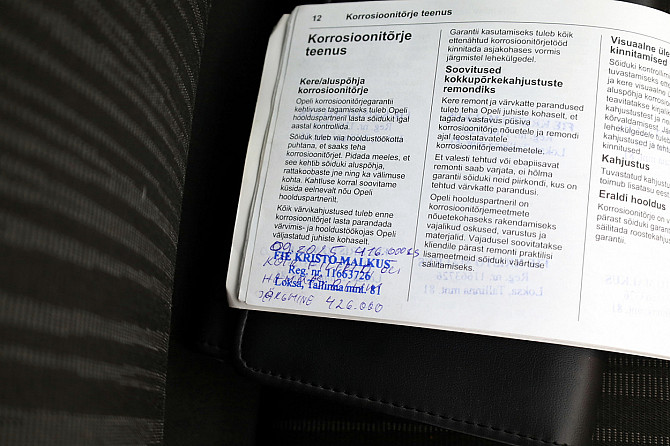 12 Korrosioonitõrje teenus
Korrosioonitõrje
teenus
Kere/aluspõhja
korrosioonitõrje
Opeli korrosioonitõrjegarantii
kehtivuse tagamiseks tuleb Opeli
hoolduspartneril lasta sõidukit igal
aastal kontrollida.
Sõiduk tuleb viia hooldustöökotta
puhtana, et saaks teha
korrosioonitõrjet. Pidada meeles, et
see kehtib sõiduki aluspõhja,
rattakoobaste jne ning ka välimuse
kohta. Kahtluse korral soovitame
küsida eelnevalt nõu Opeli
hoolduspartnerilt.
Kõik värvikahjustused tuleb enne
korrosioonitõrjet lasta parandada
värvimis- ja hooldustöökojas Opeli
väljastatud juhiste kohaselt.
416.000
FIE KRISTO MALKUS
Reg. nr. 11663726
Loksa, Tallinna mnt. 81
JÄRGMINE 426.000
Garantii kasutamiseks tuleb kõik
ettenähtud korrosioonitõrjetööd
kinnitada asjakohases vormis
järgmistel lehekülgedel.
Soovitused
kokkupõrkekahjustuste
remondiks
Kere remont ja värvkatte parandused
tuleb teha Opeli juhiste kohaselt, et
tagada vastavus püsiva
korrosioonitõrje nõuetele ja remondi
ajal teostatavatele
korrosioonitõrjemeetmetele.
Et valesti tehtud või ebapiisavat
remonti saab varjata, ei hõlma
garantii sõiduki neid piirkondi, kus on
tehtud värvkatte parandusi.
Opeli hoolduspartneril on
korrosioonitõrjemeetmete
nõuetekohaseks rakendamiseks
vajalikud oskused, varustus ja
materjalid. Vajadusel soovitatakse
kliendile pärast remonti praktilisi
lisameetmeid sõiduki väärtuse
säilitamiseks.
Visuaalne üle
kinnitamised
Sõiduki kontrollim
tuvastamiseks ette
ja kere visuaalne ü
aluspõhja korrosio
teavitatakse kirjalik
kahjustustest ja ne
kõrvaldamisest. Je
lehekülgedele tuleb
kinnitused.
Kahjustus
Tuvastatud kahjustu
toimub lisatasu eest
Eraldi hooldus
Korrosioonitõrje on
pärast sõiduki garan
säilitada roostekahju
garantii.